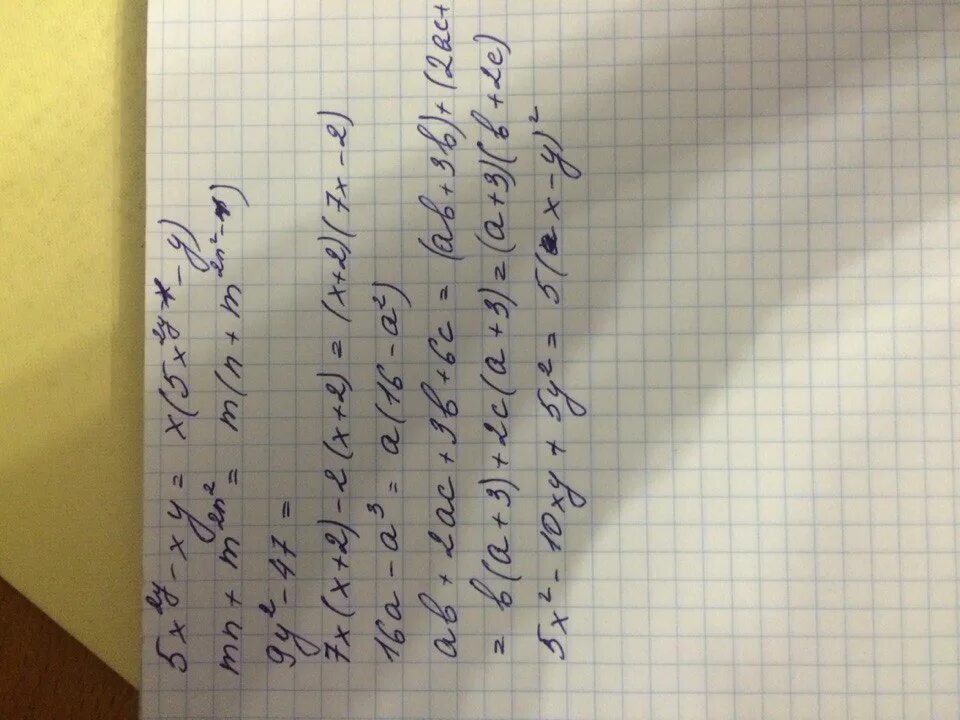 5x^{2y} - xy = x(5x^{2y-x} - y)
mn + m^{2n^2} = m(n + m^{2n^2-1})
9y^2 - 47 =
7x(x+2) - 2(x+2) = (x+2)(7x-2)
16a - a^3 = a(16 - a^2)
ab + 2ac + 3b + 6c = (ab + 3b) + (2ac +
= b(a+3) + 2c(a+3) = (a+3)(b+2c)
5x^2 - 10xy + 5y^2 = 5(x-y)^2